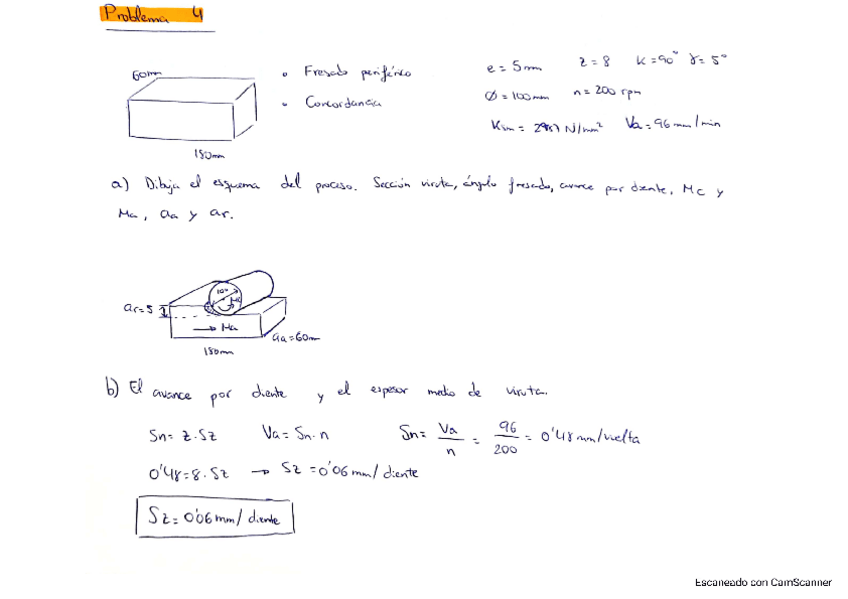 Problema 4
60mm
150mm
• Fresado periférico
• Concordancia
e = 5mm z = 8 K = 90° γ = 5°
Ø = 100mm n = 200 rpm
Ksm = 2987 N/mm² Va = 96 mm/min
a) Dibuja el esquema del proceso. Sección viruta, ángulo fresado, avance por diente, Mc y
Ma, aa y ar.
ar=5
100
Mc
→ Ma
aa=60mm
150mm
b) El avance por diente y el espesor medio de viruta.
Sn = z·Sz Va = Sn·n Sn = Va/n = 96/200 = 0'48 mm/vuelta
0'48 = 8·Sz → Sz = 0'06 mm/diente
Sz = 0'06 mm/diente
Escaneado con CamScanner